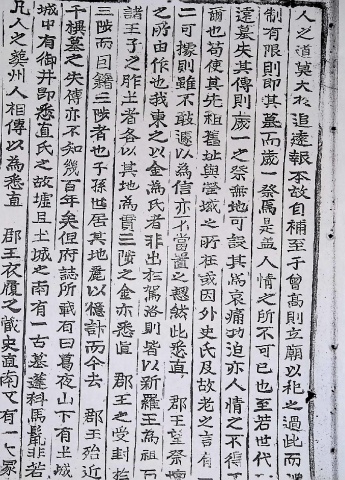 人之道莫大於追遠報本故自補至于曾高則立廟以祀之過此而
制有限則即其墓而歲一祭焉是盖人情之所不可已也至若世代
遠墓失其傳則歲一之祭無地可設其爲哀痛功迫亦人情之不得
爾也苟使其先祖舊址與塋域之所在或因外史氏及故老之言有一
二可據則雖不敢遽以為信亦不當置之恝然此悉直 郡王望祭壇
之所由作也我東之以金為氏者非出於駕洛則皆以新羅王為祖而
諸王子之胙土者各以其地為貫三陟之金亦悉直 郡王之受封於
三陟而因籍三陟者也子孫世居其地麗以億計而今去 郡王殆近
千禩墓之失傳亦不知幾百年矣但府誌所載有曰葛夜山下有土城
城中有御井即悉直氏之故墟且土城之南有一古墓蓬科馬鬣非若
凡人之葬州人相傳以為悉直 郡王衣履之藏史直南又有一大冢